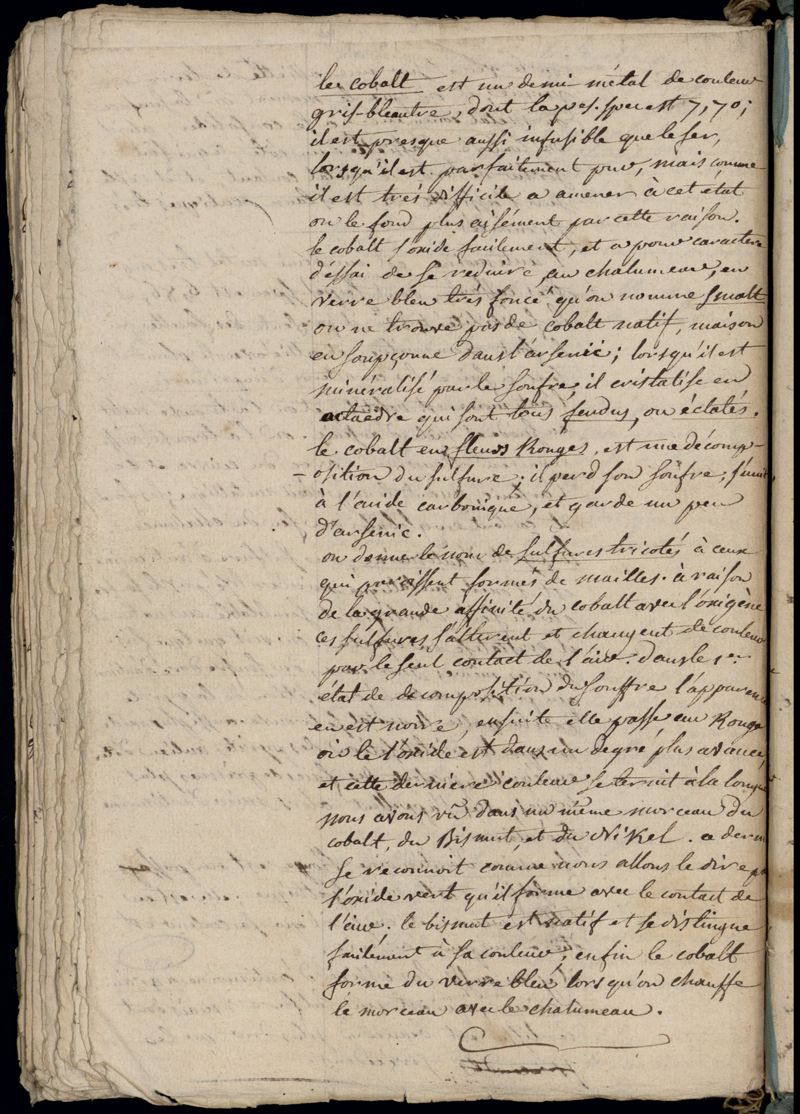 le cobalt est un demi métal de couleur
gris-bleautre, dont la pes. spe. est 7,70;
il est presque aussi infusible que le fer,
lorsqu'il est parfaitement pur, mais comme
il est trés difficile a amener à cet état
on le fond plus aisément par cette raison.
le cobalt s'oxide facilement, et a pour caractere
d'éssai de se reduire au chalumeau, en
verre bleu trés foncé qu'on nomme Smalt
on ne trouve pas de cobalt natif, mais on
en soupçonne dans l'arsenic; lorsqu'il est
minéralisé par le soufre il cristalise en
octaèdre qui sont tous fendus, ou éclatés.
le cobalt en fleurs Rouges, est une décomp-
-osition du sulfure; il perd son soufre, s'unit
à l'acide carbonique, et garde un peu
d'arsenic.
on donne le nom de sulfures tricotés à ceux
qui paroissent formés de mailles. à raison
de la grande affinité du cobalt avec l'oxigène
ces sulfures s'alterent et changent de couleur
par le seul contact de l'air. dans le 1er
état de decomposition du souffre l'apparence
en est noire, ensuite elle passe au Rouge
où le l'oxide est dans un degré plus avancé,
et cette derniere couleur se ternit à la longue
nous avons vû dans un même morceau du
cobalt, du Bismut et du Nikel. a dern
se reconnoit comme nous allons le dire p
l'oxide vert qu'il forme avec le contact de
l'air. le bismut est natif et se distingue
facilement à sa couleur; enfin le cobalt
forme du verre bleu lorsqu'on chauffe
le morceau avec le chalumeau.